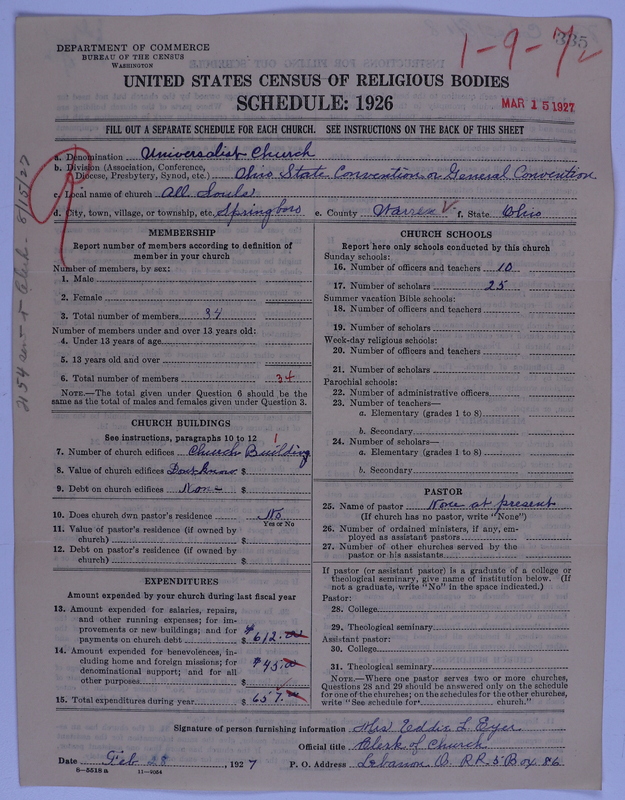 DEPARTMENT OF COMMERCE
BUREAU OF THE CENSUS
WASHINGTON
335
1-9-42
UNITED STATES CENSUS OF RELIGIOUS BODIES
SCHEDULE: 1926
MAR 15 1927
FILL OUT A SEPARATE SCHEDULE FOR EACH CHURCH. SEE INSTRUCTIONS ON THE BACK OF THIS SHEET
a. Denomination Universalist Church
b. Division (Association, Conference, Diocese, Presbytery, Synod, etc.) Ohio State Convention or General Convention
c. Local name of church All Souls
d. City, town, village, or township, etc. Springboro e. County Warren f. State Ohio
MEMBERSHIP
Report number of members according to definition of
member in your church
Number of members, by sex:
1. Male
2. Female
3. Total number of members 34
Number of members under and over 13 years old:
4. Under 13 years of age
5. 13 years old and over
6. Total number of members 34
NOTE.—The total given under Question 6 should be
same as the total of males and females given under Question 3.
CHURCH BUILDINGS
See instructions, paragraphs 10 to 12 1
7. Number of church edifices Church Building
8. Value of church edifices Dont know $
9. Debt on church edifices None $
10. Does church own pastor's residence No
Yes or No
11. Value of pastor's residence (if owned by
church) $
12. Debt on pastor's residence (if owned by
church) $
EXPENDITURES
Amount expended by church during last fiscal year
13. Amount expended for salaries, repairs,
and other running expenses; for im-
provements or new buildings; and for
payments on church debt $ 612.00
14. Amount expended for benevolences, in-
cluding home and foreign missions; for
denominational support; and for all
other purposes $ 45.00
15. Total expenditures during year $ 657.00
CHURCH SCHOOLS
Report here only schools conducted by this church
Sunday schools:
16. Number of officers and teachers 10
17. Number of scholars 25
Summer vacation Bible schools:
18. Number of officers and teachers
19. Number of scholars
Week-day religious schools:
20. Number of officers and teachers
21. Number of scholars
Parochial schools:
22. Number of administrative officers
23. Number of teachers—
a. Elementary (grades 1 to 8)
b. Secondary
24. Number of scholars—
a. Elementary (grades 1 to 8)
b. Secondary
PASTOR
25. Name of pastor None at present
(If church has no pastor, write "None")
26. Number of ordained ministers, if any, em-
ployed as assistant pastors
27. Number of other churches served by the
pastor or his assistants
If pastor (or assistant pastor) is a graduate of a college or
theological seminary, give name of institution below. (If
not a graduate, write "No" in the space indicated.)
Pastor:
28. College
29. Theological seminary
Assistant pastor:
30. College
31. Theological seminary
NOTE.—Where one pastor serves two or more churches,
Questions 28 and 29 should be answered only on the schedule
for one of the churches; on the schedules for the other churches,
write "See schedule for church."
Signature of person furnishing information Mrs Eddie L Eyer
Official title Clerk of Church
Date Feb 28, 1927 P. O. Address Lebanon O. RR 5 Box 86
8—5518 a 11—9054